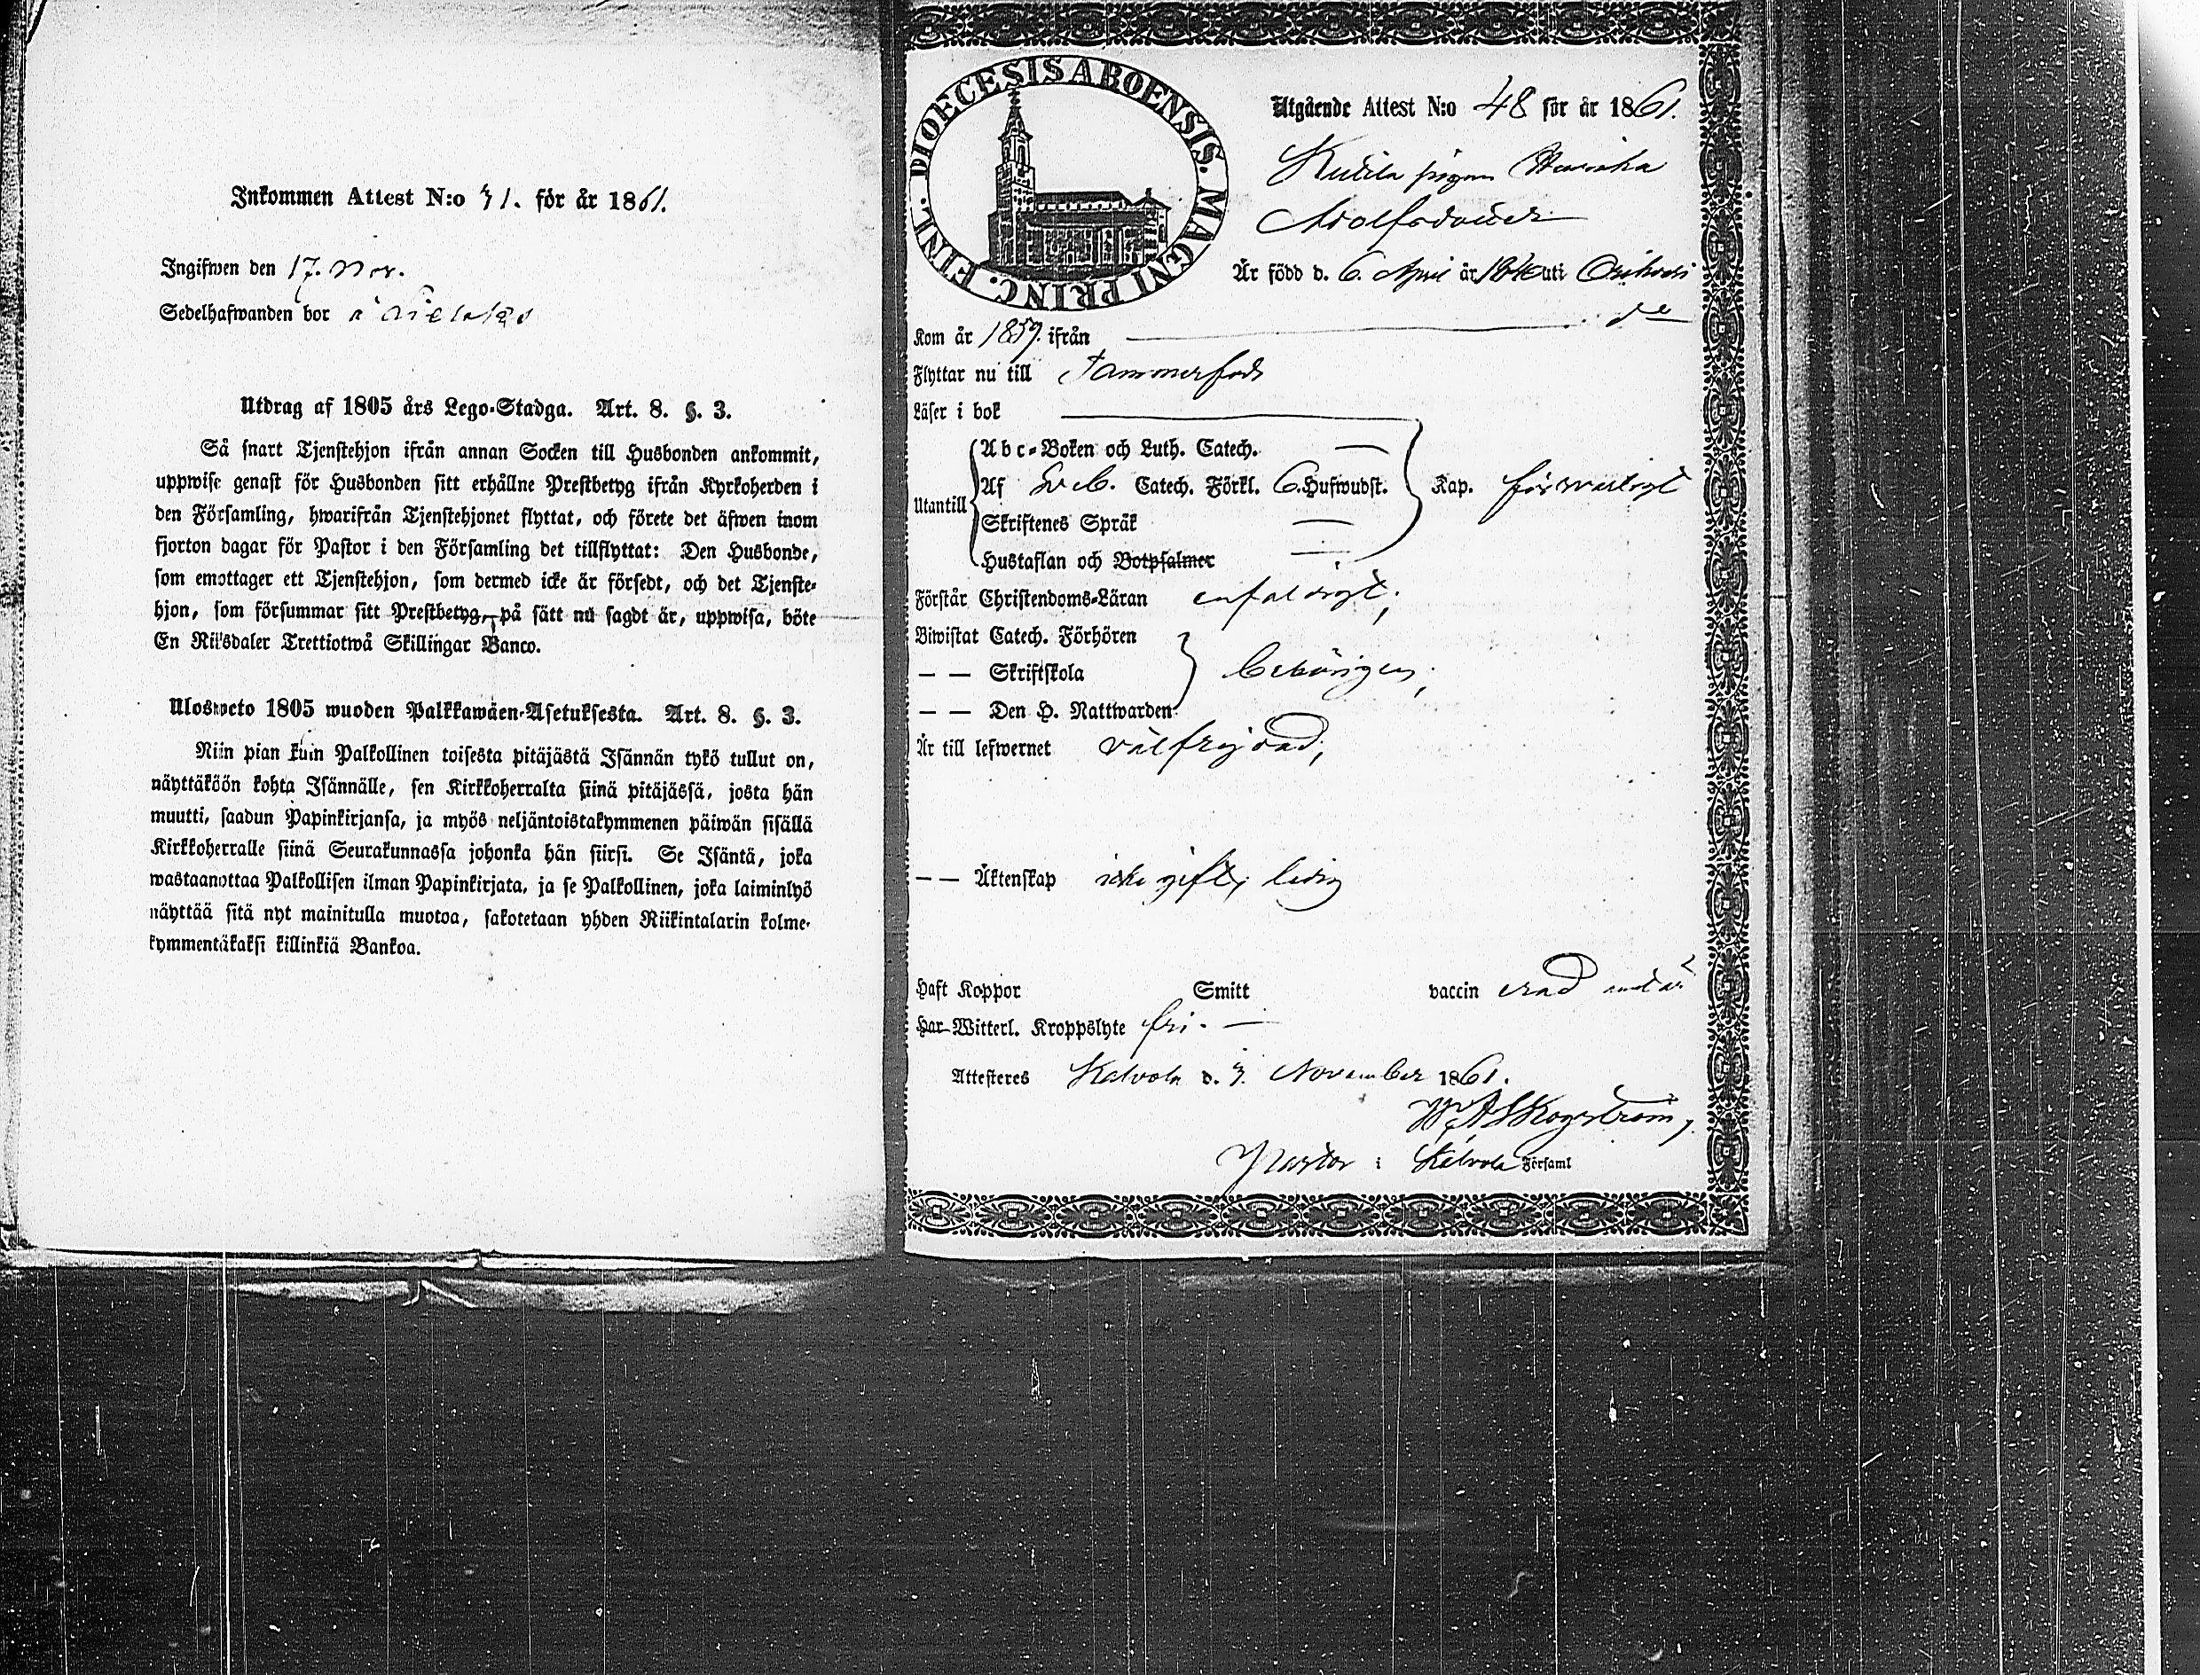 Inkommen Attest N:o 71. för år 1861.
Ingifwen den 17. Nov.
Sedelhafwanden bor å
Utdrag af 1805 års Lego-Stadga. Art. 8. §. 3.
Så snart Tjenstehjon ifrån annan Socken till Husbonden ankommit,
uppwise genast för Husbonden sitt erhållne Prestbetyg ifrån Kyrkoherden i
den Församling, hwarifrån Tjenstehjonet flyttat, och förete det äfwen inom
fjorton dagar för Pastor i den Församling det tillflyttat: Den Husbonde,
som emottager ett Tjenstehjon, som dermed icke är försedt, och det Tjenste-
hjon, som försummar sitt Prestbetyg, på sätt nu sagdt är, uppwisa, böte
En Riksdaler Trettiotwå Skillingar Banco.
Ulosweto 1805 wuoden Palkkawäen-Asetuksesta. Art. 8. §. 3.
Niin pian kuin Palkollinen toisesta pitäjästä Isännän tykö tullut on,
näyttäköön kohta Isännälle, sen Kirkkoherralta siinä pitäjässä, josta hän
muutti, saadun Papinkirjansa, ja myös neljäntoistakymmenen päiwän sisällä
Kirkkoherralle siinä Seurakunnassa johonka hän siirsi. Se Isäntä, joka
wastaanottaa Palkollisen ilman Papinkirjata, ja se Palkollinen, joka laiminlyö
näyttää sitä nyt mainitulla muotoa, sakotetaan yhden Riikintalarin kolme-
kymmentäkaksi killinkiä Bankoa.
DIOECESIS ABOENSIS. MAGNI PRINC. FINL.
Utgående Attest N:o 48 för år 1861.
pigan Henrika
Adolfsdotter
Är född d. 6. April år uti
Kom år 1859. ifrån
Flyttar nu till Tammerfors
Läser i bok
Abc-Boken och Luth. Catech.
Utantill Af Sveb. Catech. Förkl. 6. Hufwudst. Kap. försvarligt
Skriftenes Språk
Hustaflan och Botpsalmer
Förstår Christendoms-Läran enfaldigt;
Biwistat Catech. Förhören
— — Skriftskola behörigen;
— — Den H. Nattwarden
Är till lefwernet välfrejdad;
— — Äktenskap icke gift, ledig
Haft Koppor Smitt vaccinerad
Har Witterl. Kroppslyte fri.
Attesteres Kalvola d. 3. November 1861.
W. A. Skogström,
Pastor i Kalvola Församl